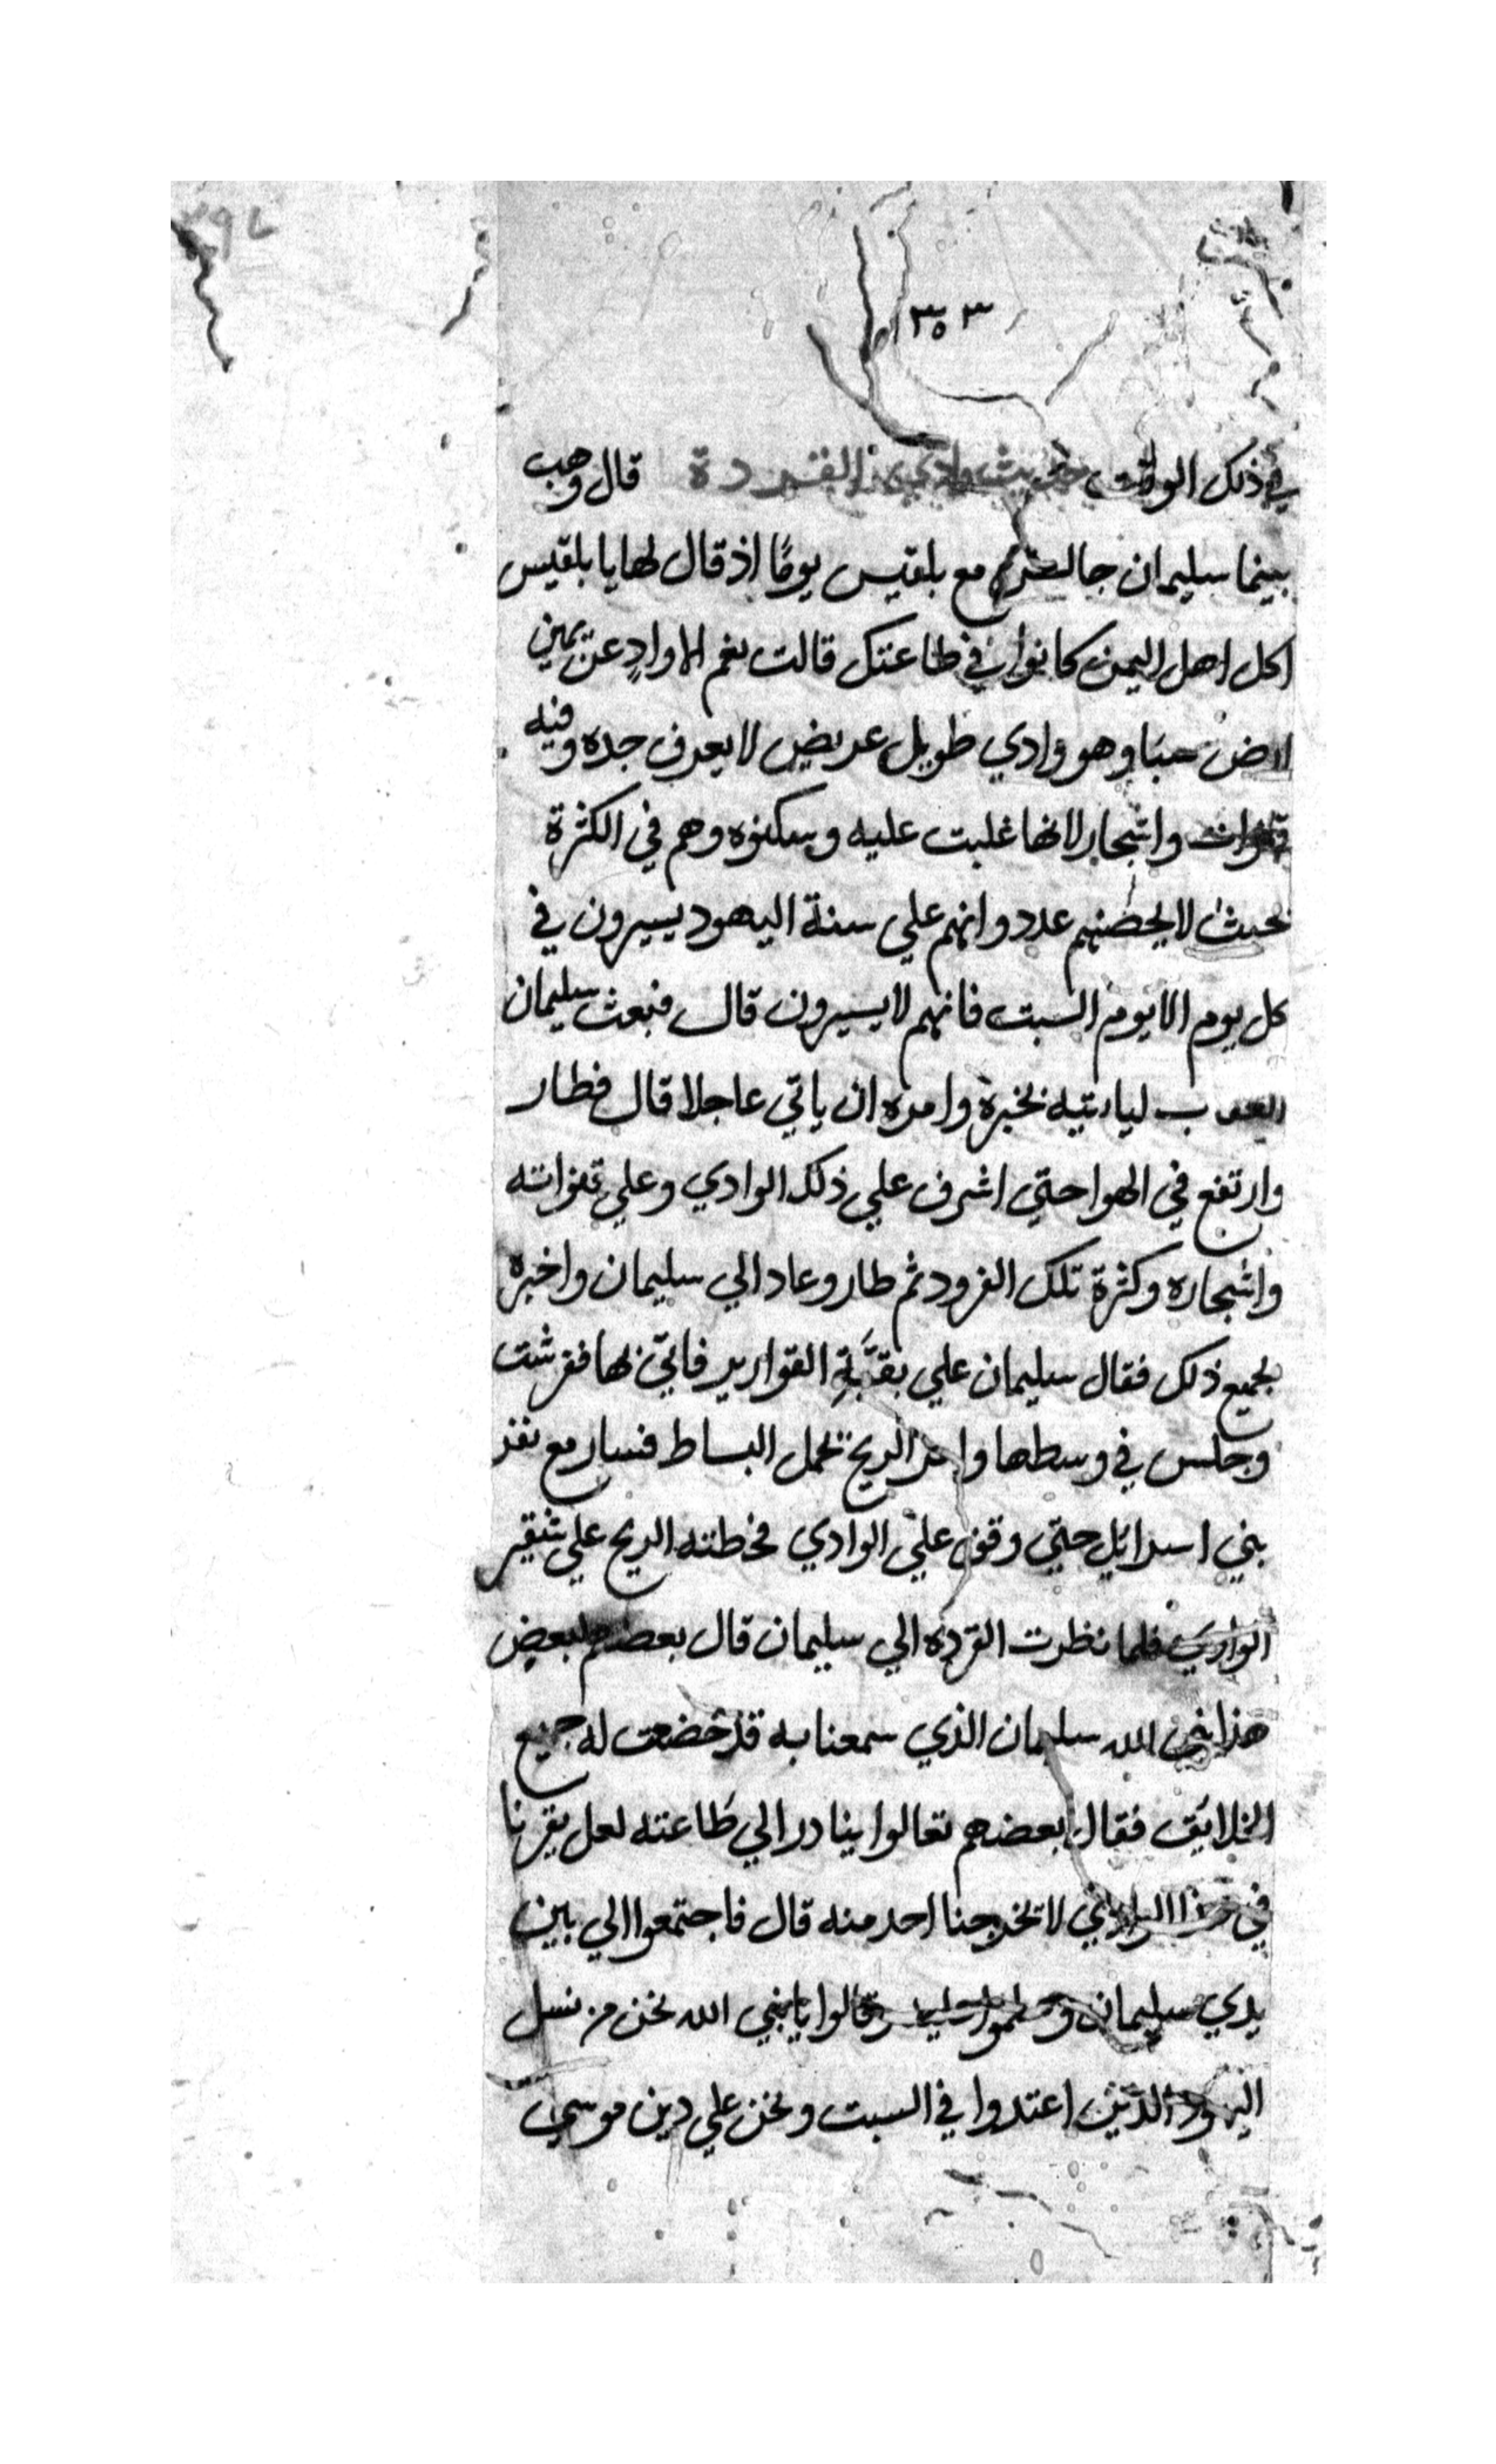 ٣٥٣
في ذلك الوقت حديث وادي القردة قال وهب
بينما سليمان جالس مع بلقيس يومًا اذ قال لها يا بلقيس
اكل اهل اليمن كانوا في طاعتك قالت نعم الا وادٍ عن يمين
ارض سبا وهو وادي طويل عريض لا يعرف حده وفيه
واشجار لانها غلبت عليه وسكنوه وهم في الكثرة
بحيث لا يحصيهم عدد وانهم علي سنة اليهود يسيرون في
كل يوم الا يوم السبت فانهم لا يسيرون قال فبعث سليمان
لياتيه بخبره وامره ان ياتي عاجلا قال فطار
وارتفع في الهوا حتي اشرف علي ذلك الوادي وعلي
واشجاره وكثرة تلك القرود ثم طار وعاد الي سليمان واخبره
بجميع ذلك فقال سليمان علي بقبَّةِ القوارير فاتيّ بها ففرشت
وجلس في وسطها وامر الريح تحمل البساط فسار مع نفر
بني اسرائيل حتي وقف علي الوادي فحطته الريح علي شفير
الوادي فلما نظرت القرده الي سليمان قال بعضهم لبعض
هذا نبي الله سليمان الذي سمعنا به قد خضعت له جميع
الخلائق فقال بعضهم تعالوا بنا در الي طاعته لعل يقرنا
في هذا الوادي لا يخرجنا احد منه قال فاجتمعوا الي بين
يدي سليمان وسلموا عليه وقالوا يا نبي الله نحن من نسل
اليهود الذين اعتدوا في السبت ونحن علي دين موسي